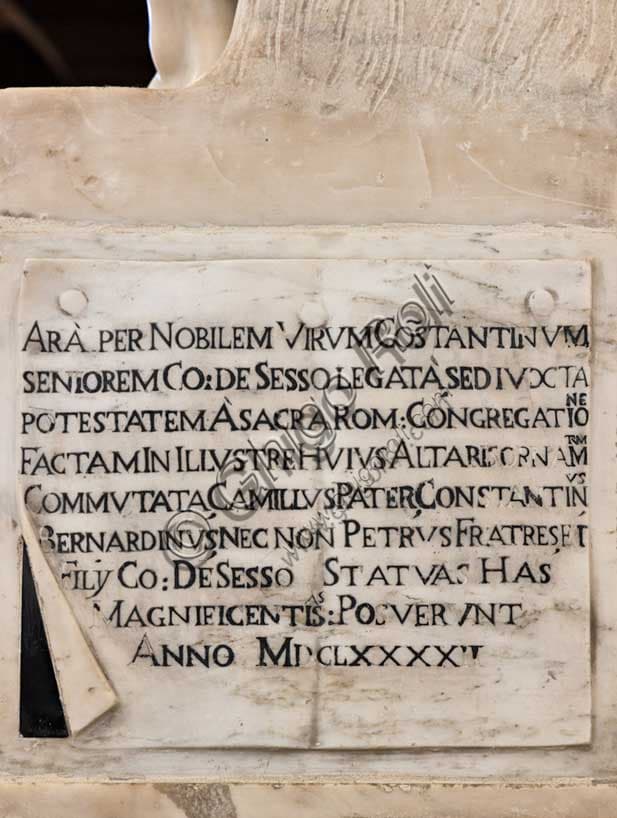 ARÀ PER NOBILEM VIRVM COSTANTINVM
SENIOREM CO: DE SESSO LEGATA SED IVXTA
POTESTATEM À SACRA ROM: CONGREGATIONE
FACTAM IN ILLVSTRE HVIVS ALTARIS ORNAMTVM
COMMVTATA CAMILLVS PATER, CONSTANTINVS
BERNARDINVS NEC NON PETRVS FRATRES, ET
FILŸ CO: DE SESSO STATVAS HAS
MAGNIFICENTISAS: POSVERVNT
ANNO
© Ghigo Roli
www.ghigoroli.com